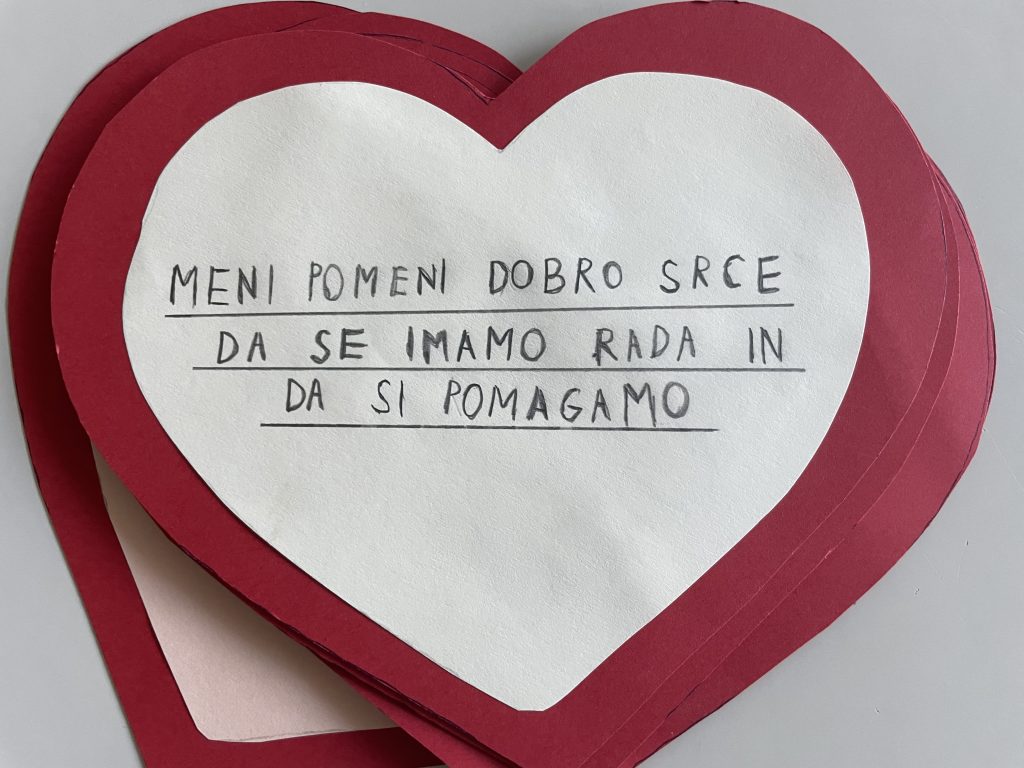 MENI POMENI DOBRO SRCE
DA SE IMAMO RADA IN
DA SI POMAGAMO